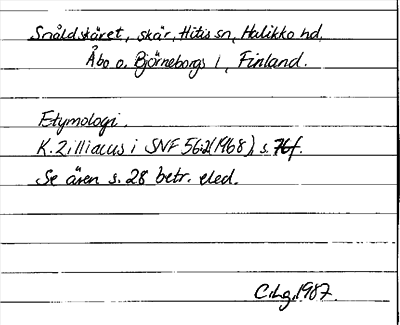 Snåldskäret, skär, Hitis sn, Halikko hd,
Åbo o. Björneborgs l, Finland.
Etymologi.
K. Zilliacus i SNF 56:2 (1968), s. 76f.
Se även s. 28 betr. eled.
C.Lg. 1987.